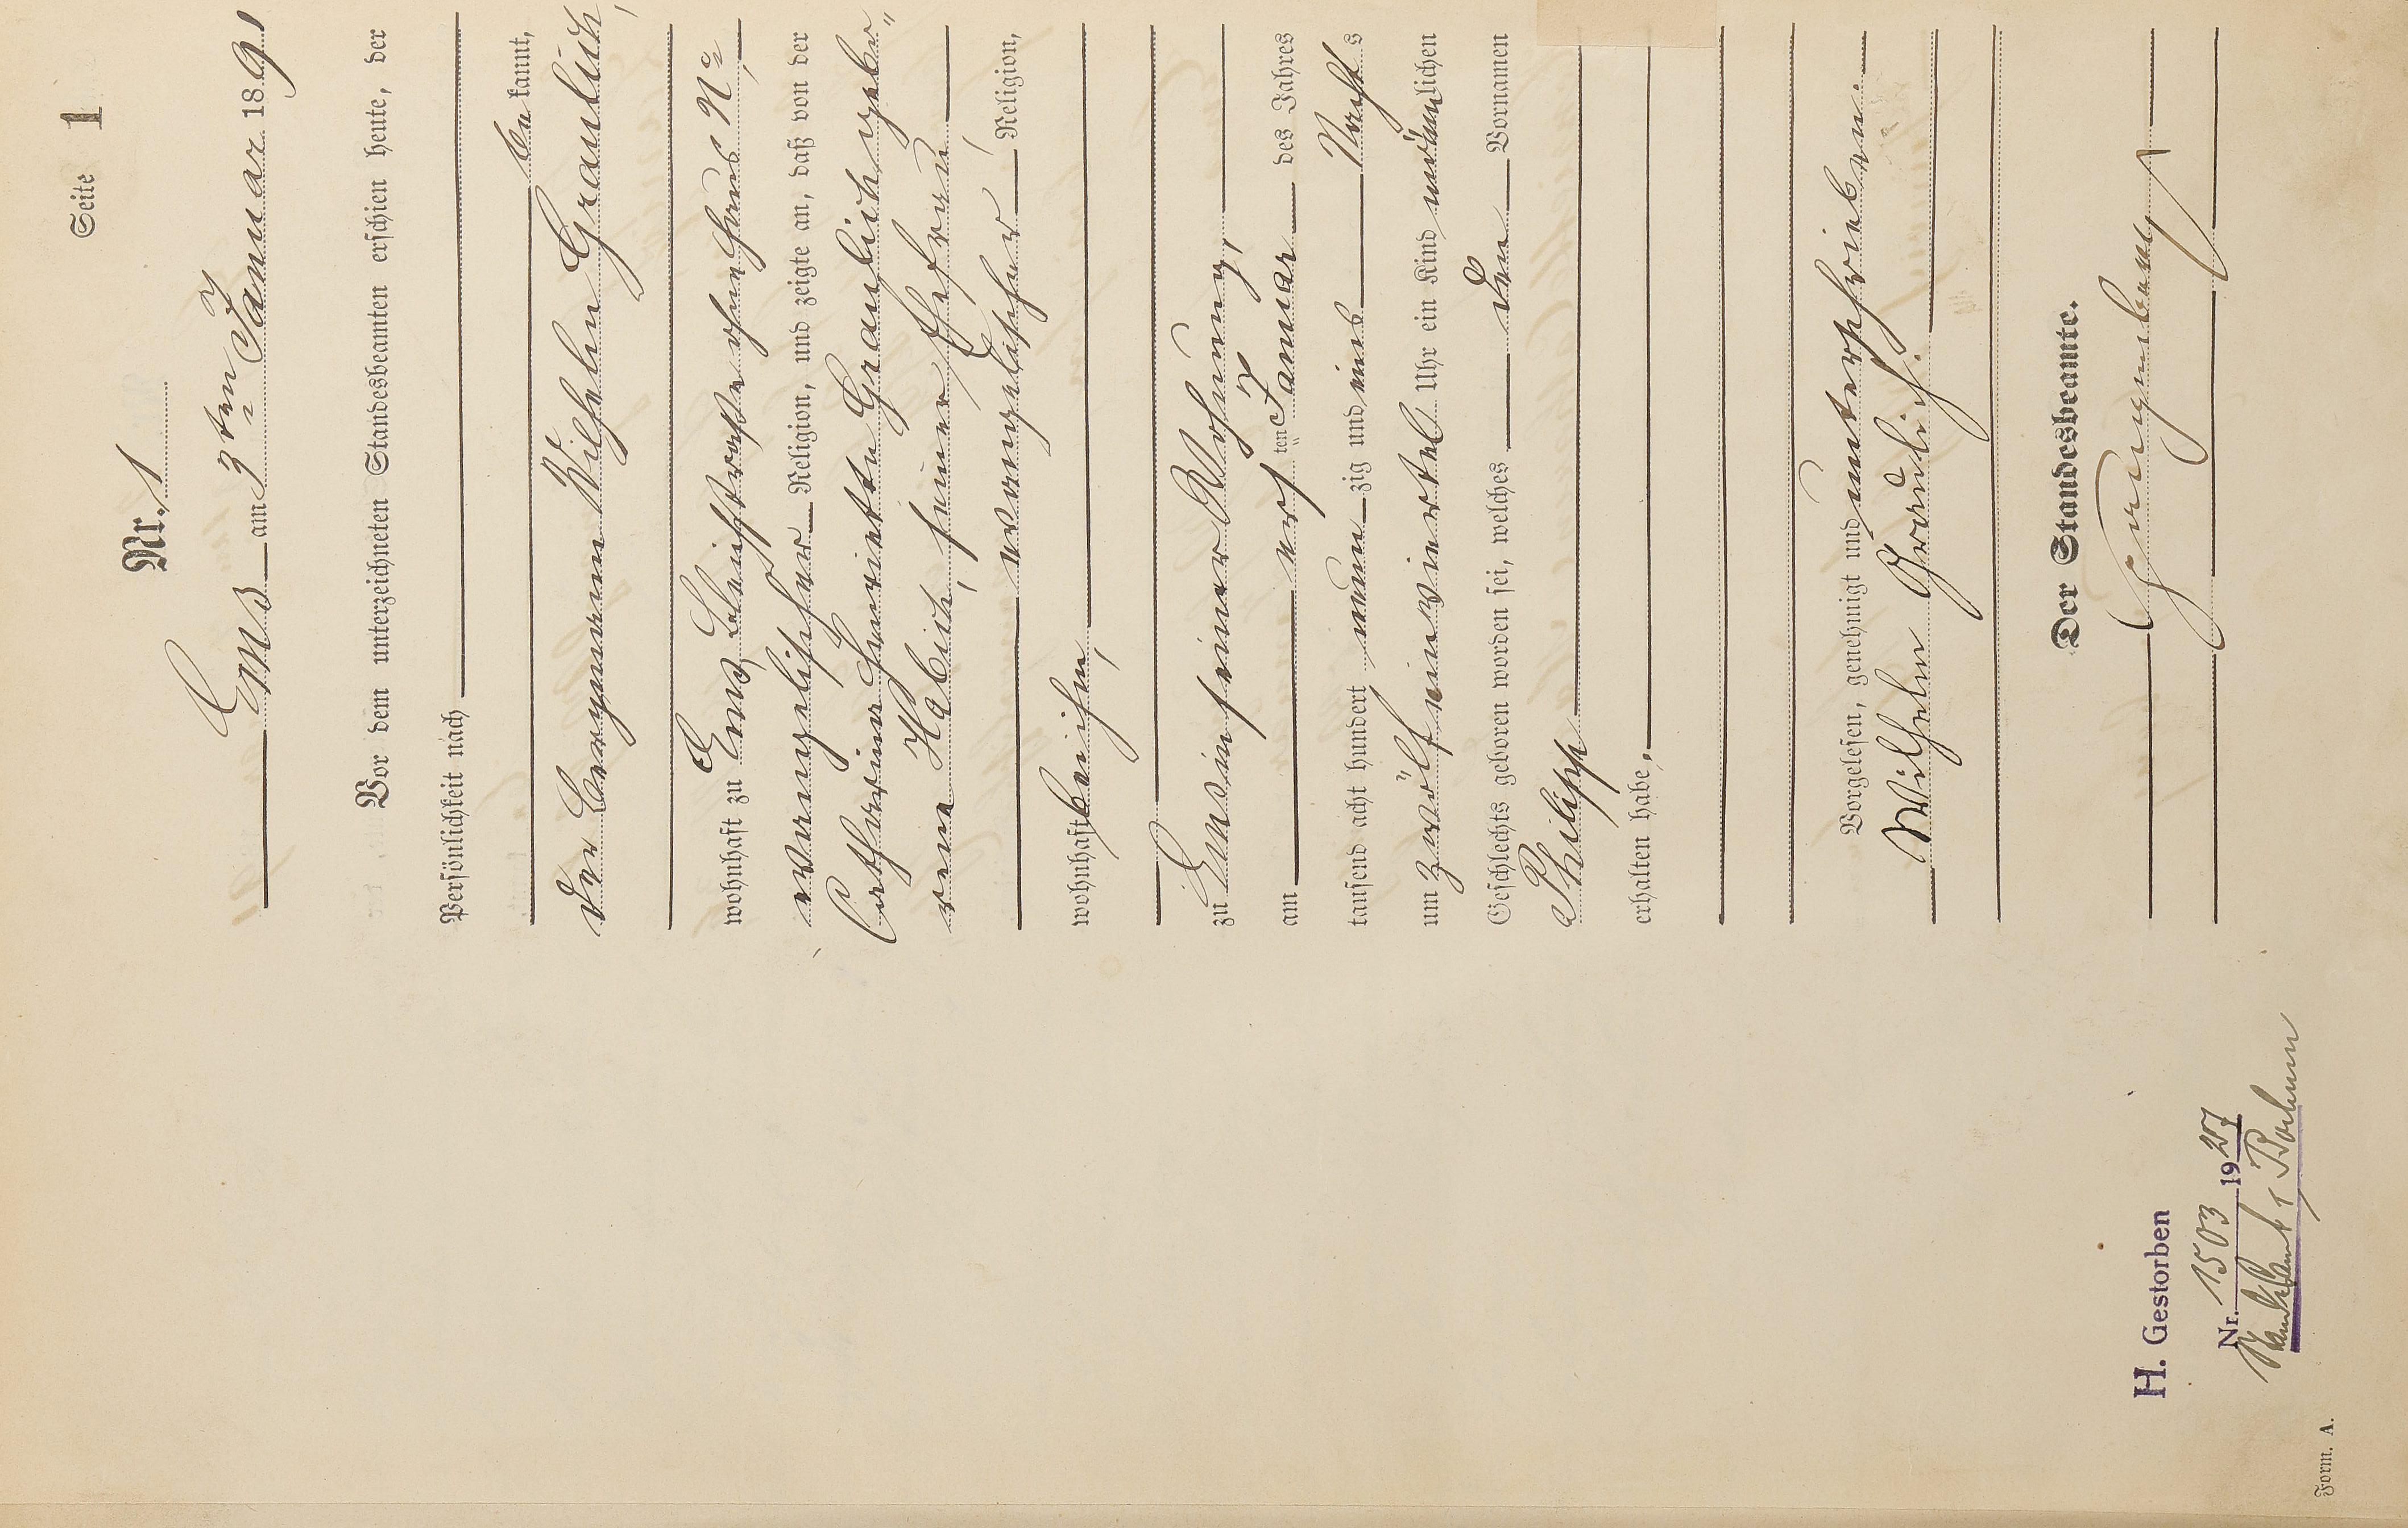 Seite 1
Nr. 1
Ems am 3ten Januar 1891
Vor dem unterzeichneten Standesbeamten erschien heute, der
Persönlichkeit nach
be kannt,
der Bergmann Wilhelm Graulich,
wohnhaft zu Ems, ohne Haus No,
evangelischer Religion, und zeigte an, daß von der
Catharine Henriette Graulich gebo-
rene Habich, seiner Ehefrau
evangelischer Religion,
wohnhaft bei ihm,
zu Ems in seiner Wohnung,
am erstten Januar des Jahres
tausend acht hundert neun zig und eins Nachts
um zwölf einviertel Uhr ein Kind männlichen
Geschlechts geboren worden sei, welches den Vornamen
Philipp
erhalten habe.
Vorgelesen, genehmigt und unterschrieben.
Wilhelm Graulich.
Der Standesbeamte.
H. Gestorben
Nr. 1503 1927
Standesamt 1 Bochum
Form. A.